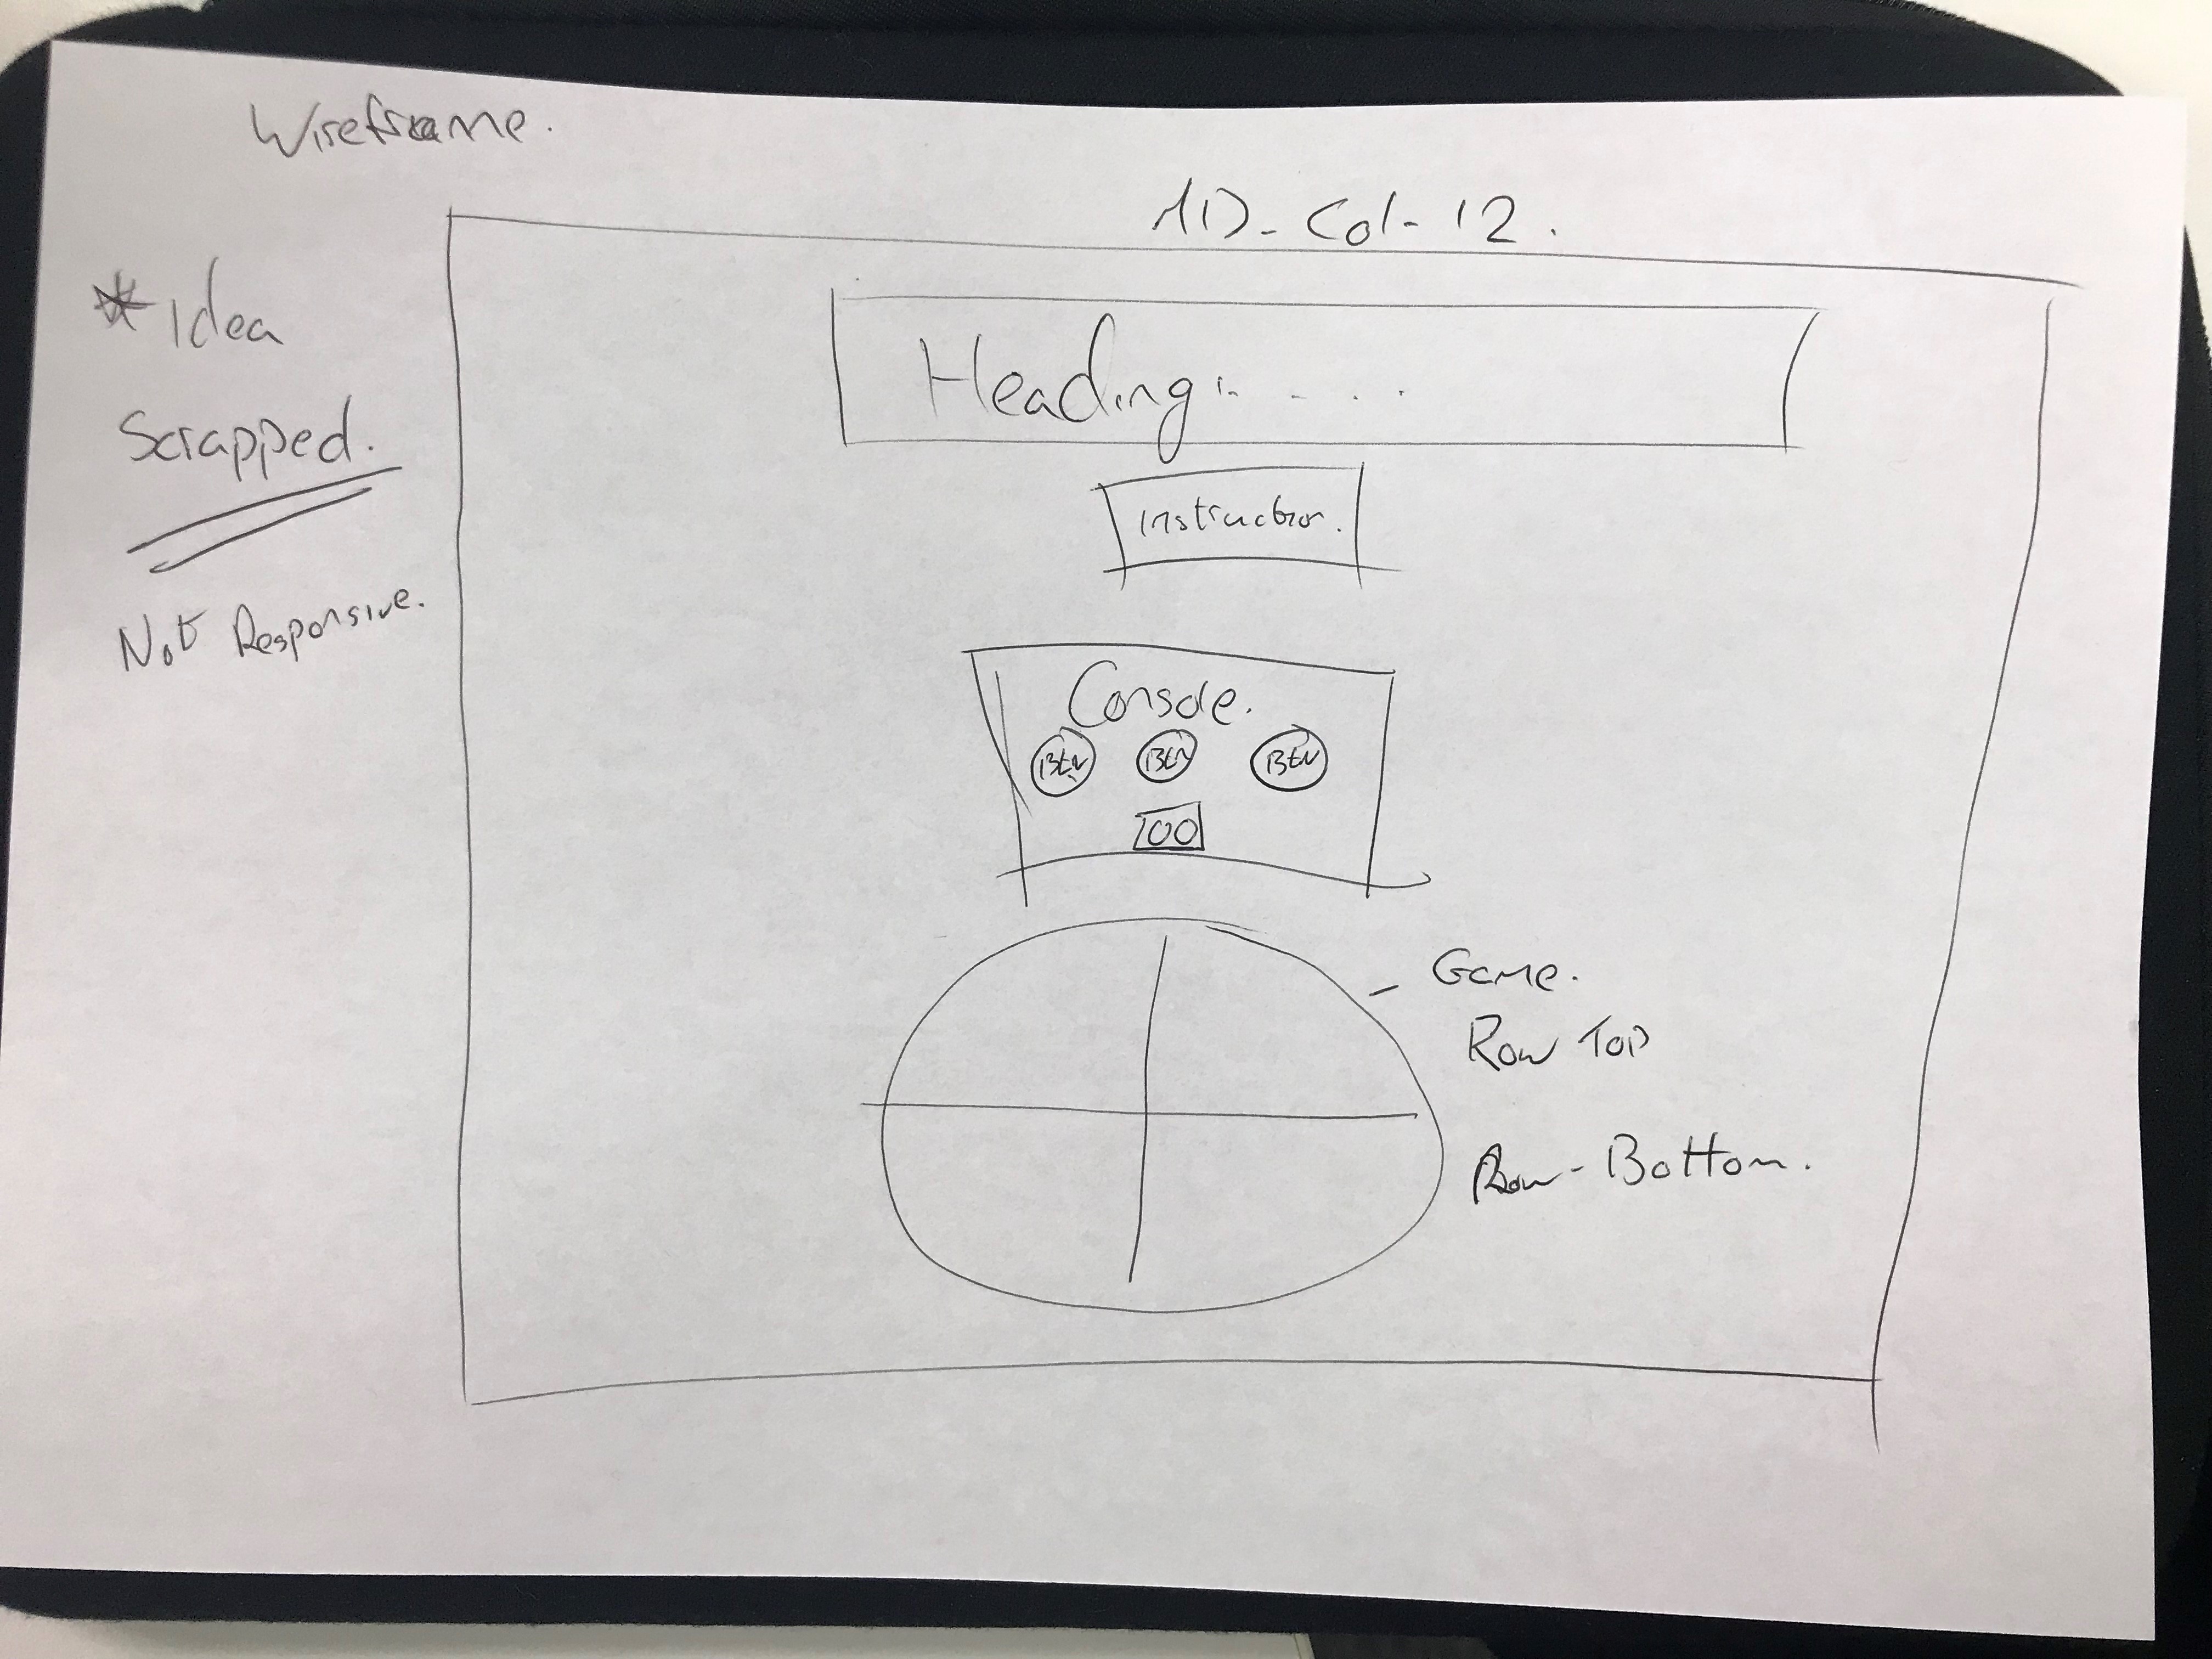 Wireframe.
MD-Col-12.
* Idea
Scrapped.
Not Responsive.
Heading
Instruction.
Console.
Btn Btn Btn
Game.
Row Top
Row-Bottom.